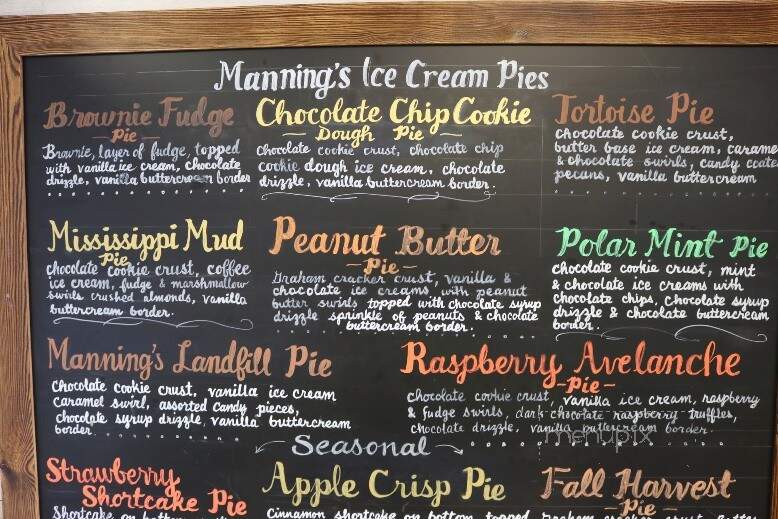 Manning's Ice Cream Pies
Brownie Fudge
Pie
Brownie, layer of fudge, topped
with vanilla ice cream, chocolate
drizzle, vanilla buttercream border
Chocolate Chip Cookie
Dough Pie
Chocolate cookie crust, chocolate chip
cookie dough ice cream, chocolate
drizzle, vanilla buttercream border.
Tortoise Pie
chocolate cookie crust,
butter base ice cream, carame
& chocolate swirls, candy coate
pecans, vanilla buttercream
Mississippi Mud
Pie
chocolate cookie crust, coffee
ice cream, fudge & marshmallow
swirls crushed almonds, vanilla
buttercream border.
Peanut Butter
Pie
Graham cracker crust, vanilla &
chocolate ice creams, with peanut
butter swirls topped with chocolate syrup
drizzle sprinkle of peanuts & chocolate
buttercream border.
Polar Mint Pie
chocolate cookie crust, mint
& chocolate ice creams with
chocolate chips, chocolate syrup
drizzle & chocolate buttercream
border.
Manning's Landfill Pie
Chocolate cookie crust, vanilla ice cream
caramel swirl, assorted candy pieces,
chocolate syrup drizzle, vanilla buttercream
border.
Raspberry Avelanche
Pie
chocolate cookie crust, vanilla ice cream, raspberry
& fudge swirls, dark chocolate raspberry truffles,
chocolate drizzle, vanilla buttercream border.
menupix
Seasonal
Strawberry
Shortcake Pie
Apple Crisp Pie
Cinnamon shortcake on bottom, topped
Fall Harvest
Pie